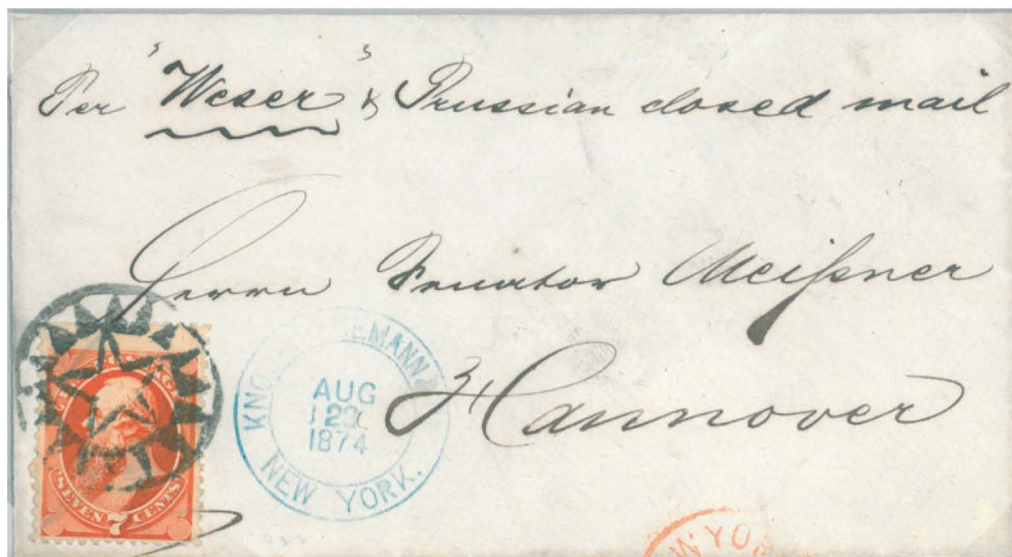 Per "Weser" & Prussian closed mail
Herrn Senator Meißner
Hannover
AUG
12
1874
NEW YORK.
SEVEN 7 CENTS
W YOR